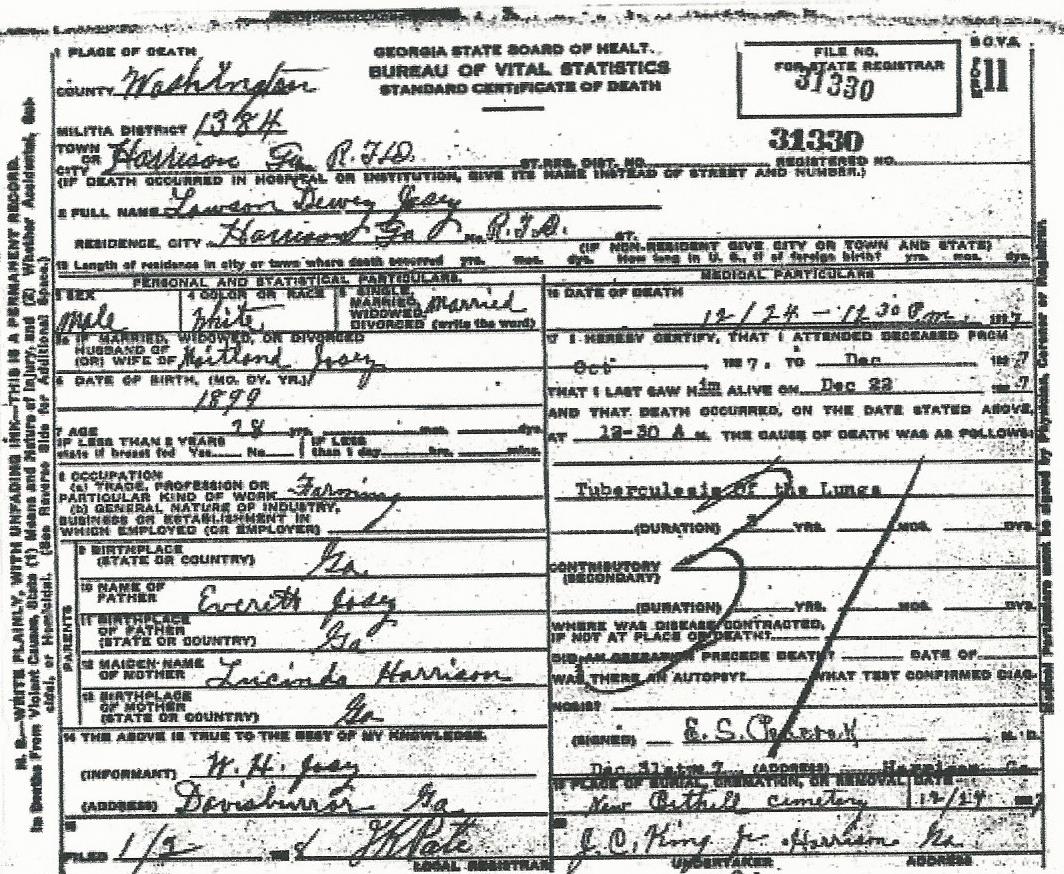 1 PLACE OF DEATH
GEORGIA STATE BOARD OF HEALT.
BUREAU OF VITAL STATISTICS
STANDARD CERTIFICATE OF DEATH
FILE NO.
FOR STATE REGISTRAR
31330
11
COUNTY Washington
MILITIA DISTRICT 1384
31330
TOWN OR CITY Harrison Ga R.F.D. ST. REG. DIST. NO. REGISTERED NO.
(IF DEATH OCCURRED IN HOSPITAL OR INSTITUTION, GIVE ITS NAME INSTEAD OF STREET AND NUMBER.)
2 FULL NAME Lawson Dewey Josey
RESIDENCE, CITY Harrison Ga No. R.F.D. ST.
(IF NON-RESIDENT GIVE CITY OR TOWN AND STATE)
Length of residence in city or town where death occurred yrs. mos. dys. How long in U. S., if of foreign birth? yrs. mos. dys.
PERSONAL AND STATISTICAL PARTICULARS.
3 SEX Male
4 COLOR OR RACE White
5 SINGLE, MARRIED, WIDOWED, DIVORCED (write the word) Married
5a IF MARRIED, WIDOWED, OR DIVORCED
HUSBAND OF
(OR) WIFE OF Maitland Josey
6 DATE OF BIRTH, (MO. DY. YR.)
1899
7 AGE 28 yrs. mos. dys.
IF LESS THAN 2 YEARS state if breast fed Yes No
IF LESS than 1 day hrs. mins.
8 OCCUPATION
(a) TRADE, PROFESSION OR
PARTICULAR KIND OF WORK Farming
(b) GENERAL NATURE OF INDUSTRY,
BUSINESS OR ESTABLISHMENT IN
WHICH EMPLOYED (OR EMPLOYER)
PARENTS
9 BIRTHPLACE
(STATE OR COUNTRY) Ga
10 NAME OF
FATHER Everett Josey
11 BIRTHPLACE
OF FATHER
(STATE OR COUNTRY) Ga
12 MAIDEN NAME
OF MOTHER Lucinda Harrison
13 BIRTHPLACE
OF MOTHER
(STATE OR COUNTRY) Ga
14 THE ABOVE IS TRUE TO THE BEST OF MY KNOWLEDGE.
(INFORMANT) W. H. Josey
(ADDRESS) Davisboro Ga
15
FILED 1/2 J K Pate
LOCAL REGISTRAR
MEDICAL PARTICULARS
16 DATE OF DEATH
12/24 - 12 30 P m. 1927
17 I HEREBY CERTIFY, THAT I ATTENDED DECEASED FROM
Oct 1927, TO Dec 1927
THAT I LAST SAW Him ALIVE ON Dec 22 1927
AND THAT DEATH OCCURRED, ON THE DATE STATED ABOVE,
AT 12-30 A M. THE CAUSE OF DEATH WAS AS FOLLOWS:
Tuberculesis of the Lungs
(DURATION) YRS. MOS. DYS.
CONTRIBUTORY
(SECONDARY)
(DURATION) YRS. MOS. DYS.
WHERE WAS DISEASE CONTRACTED,
IF NOT AT PLACE OF DEATH?
DID AN OPERATION PRECEDE DEATH? DATE OF
WAS THERE AN AUTOPSY? WHAT TEST CONFIRMED DIAG-
NOSIS?
31
(SIGNED) E. S. M. D.
Dec 31st (ADDRESS) Harrison Ga
19 PLACE OF BURIAL, CREMATION, OR REMOVAL DATE
New Bethell cemetery 12/24
20
J. C. King Jr. Harrison Ga
UNDERTAKER ADDRESS
N. B.—WRITE PLAINLY, WITH UNFADING INK—THIS IS A PERMANENT RECORD.
In Deaths From Violent Causes, State (1) Means and Nature of Injury, and (2) Whether Accidental, Sui-
cidal, or Homicidal. (See Reverse Side for Additional Space.)
Medical Particulars must be signed by Physician, Coroner or Registrar.